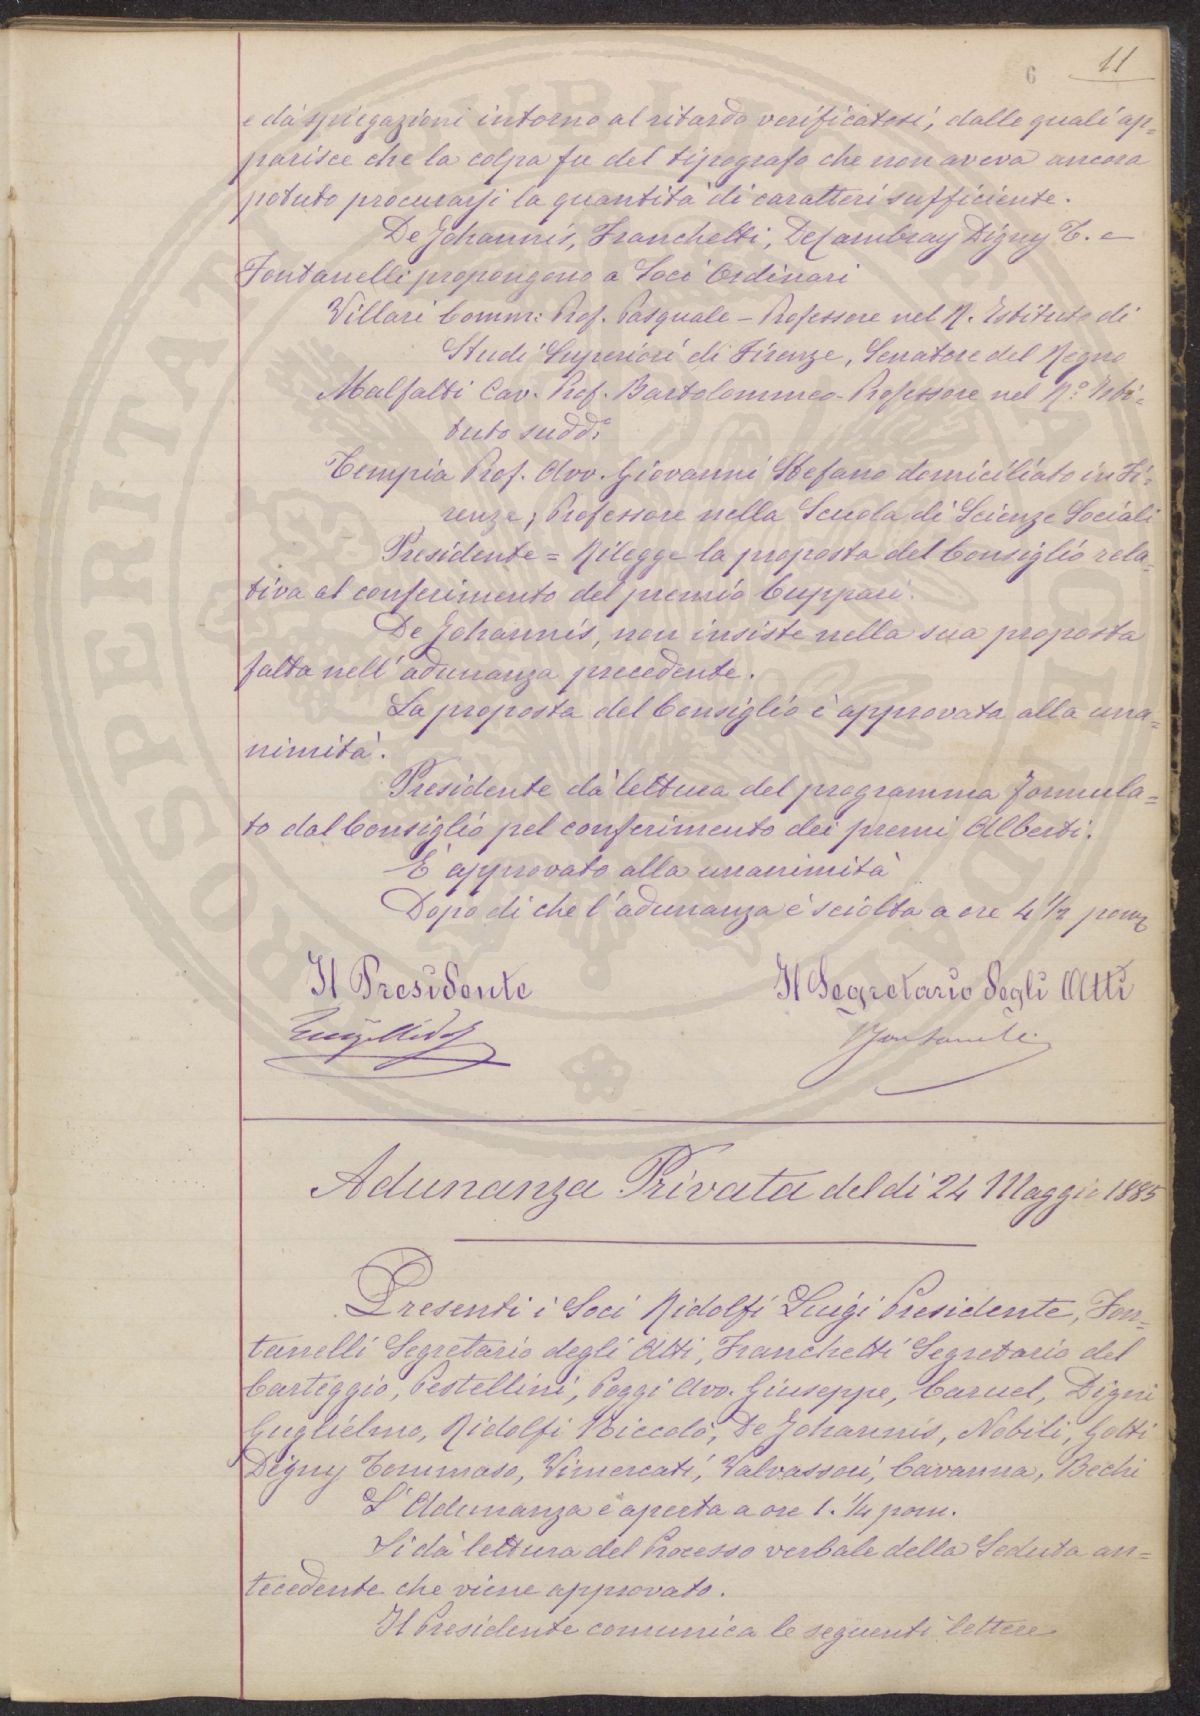 6
11
e dà spiegazioni intorno al ritardo verificatosi, dalle quali ap=
parisce che la colpa fu del tipografo che non aveva ancora
potuto procurarsi la quantità di caratteri sufficiente.
De Johannis, Franchetti, De Cambray Digny T. e
Fontanelli propongono a Soci Ordinari
Villari Comm: Prof. Pasquale - Professore nel R. Istituto di
Studi Superiori di Firenze, Senatore del Regno
Malfatti Cav. Prof. Bartolommeo - Professore nel R.º Isti=
tuto sudd:
Tempia Prof. Avv. Giovanni Stefano domiciliato in Fi=
renze, Professore nella Scuola di Scienze Sociali
Presidente = Rilegge la proposta del Consiglio rela=
tiva al conferimento del premio Cuppari.
De Johannis, non insiste nella sua proposta
fatta nell'adunanza precedente.
La proposta del Consiglio è approvata alla una=
nimità.
Presidente dà lettura del programma formula=
to dal Consiglio pel conferimento dei premi Alberti.
È approvato alla unanimità
Dopo di che l'adunanza è sciolta a ore 4 1/2 pom
Il Presidente
Il Segretario degli Atti
Luigi Ridolfi
Fontanelli
Adunanza Privata del dì 24 Maggio 1885
Presenti i Soci Ridolfi Luigi Presidente, Fon=
tanelli Segretario degli Atti, Franchetti Segretario del
Carteggio, Pestellini, Poggi Avv. Giuseppe, Caruel, Digni
Guglielmo, Ridolfi Niccolò, De Johannis, Nobili, Gotti
Digny Tommaso, Vimercati, Valvassori, Cavanna, Bechi
L'Adunanza è aperta a ore 1. 1/4 pom.
Si dà lettura del Processo verbale della Seduta an=
tecedente che viene approvato.
Il Presidente comunica le seguenti lettere
PROSPERITATI PUBLICAE AUGENDAE